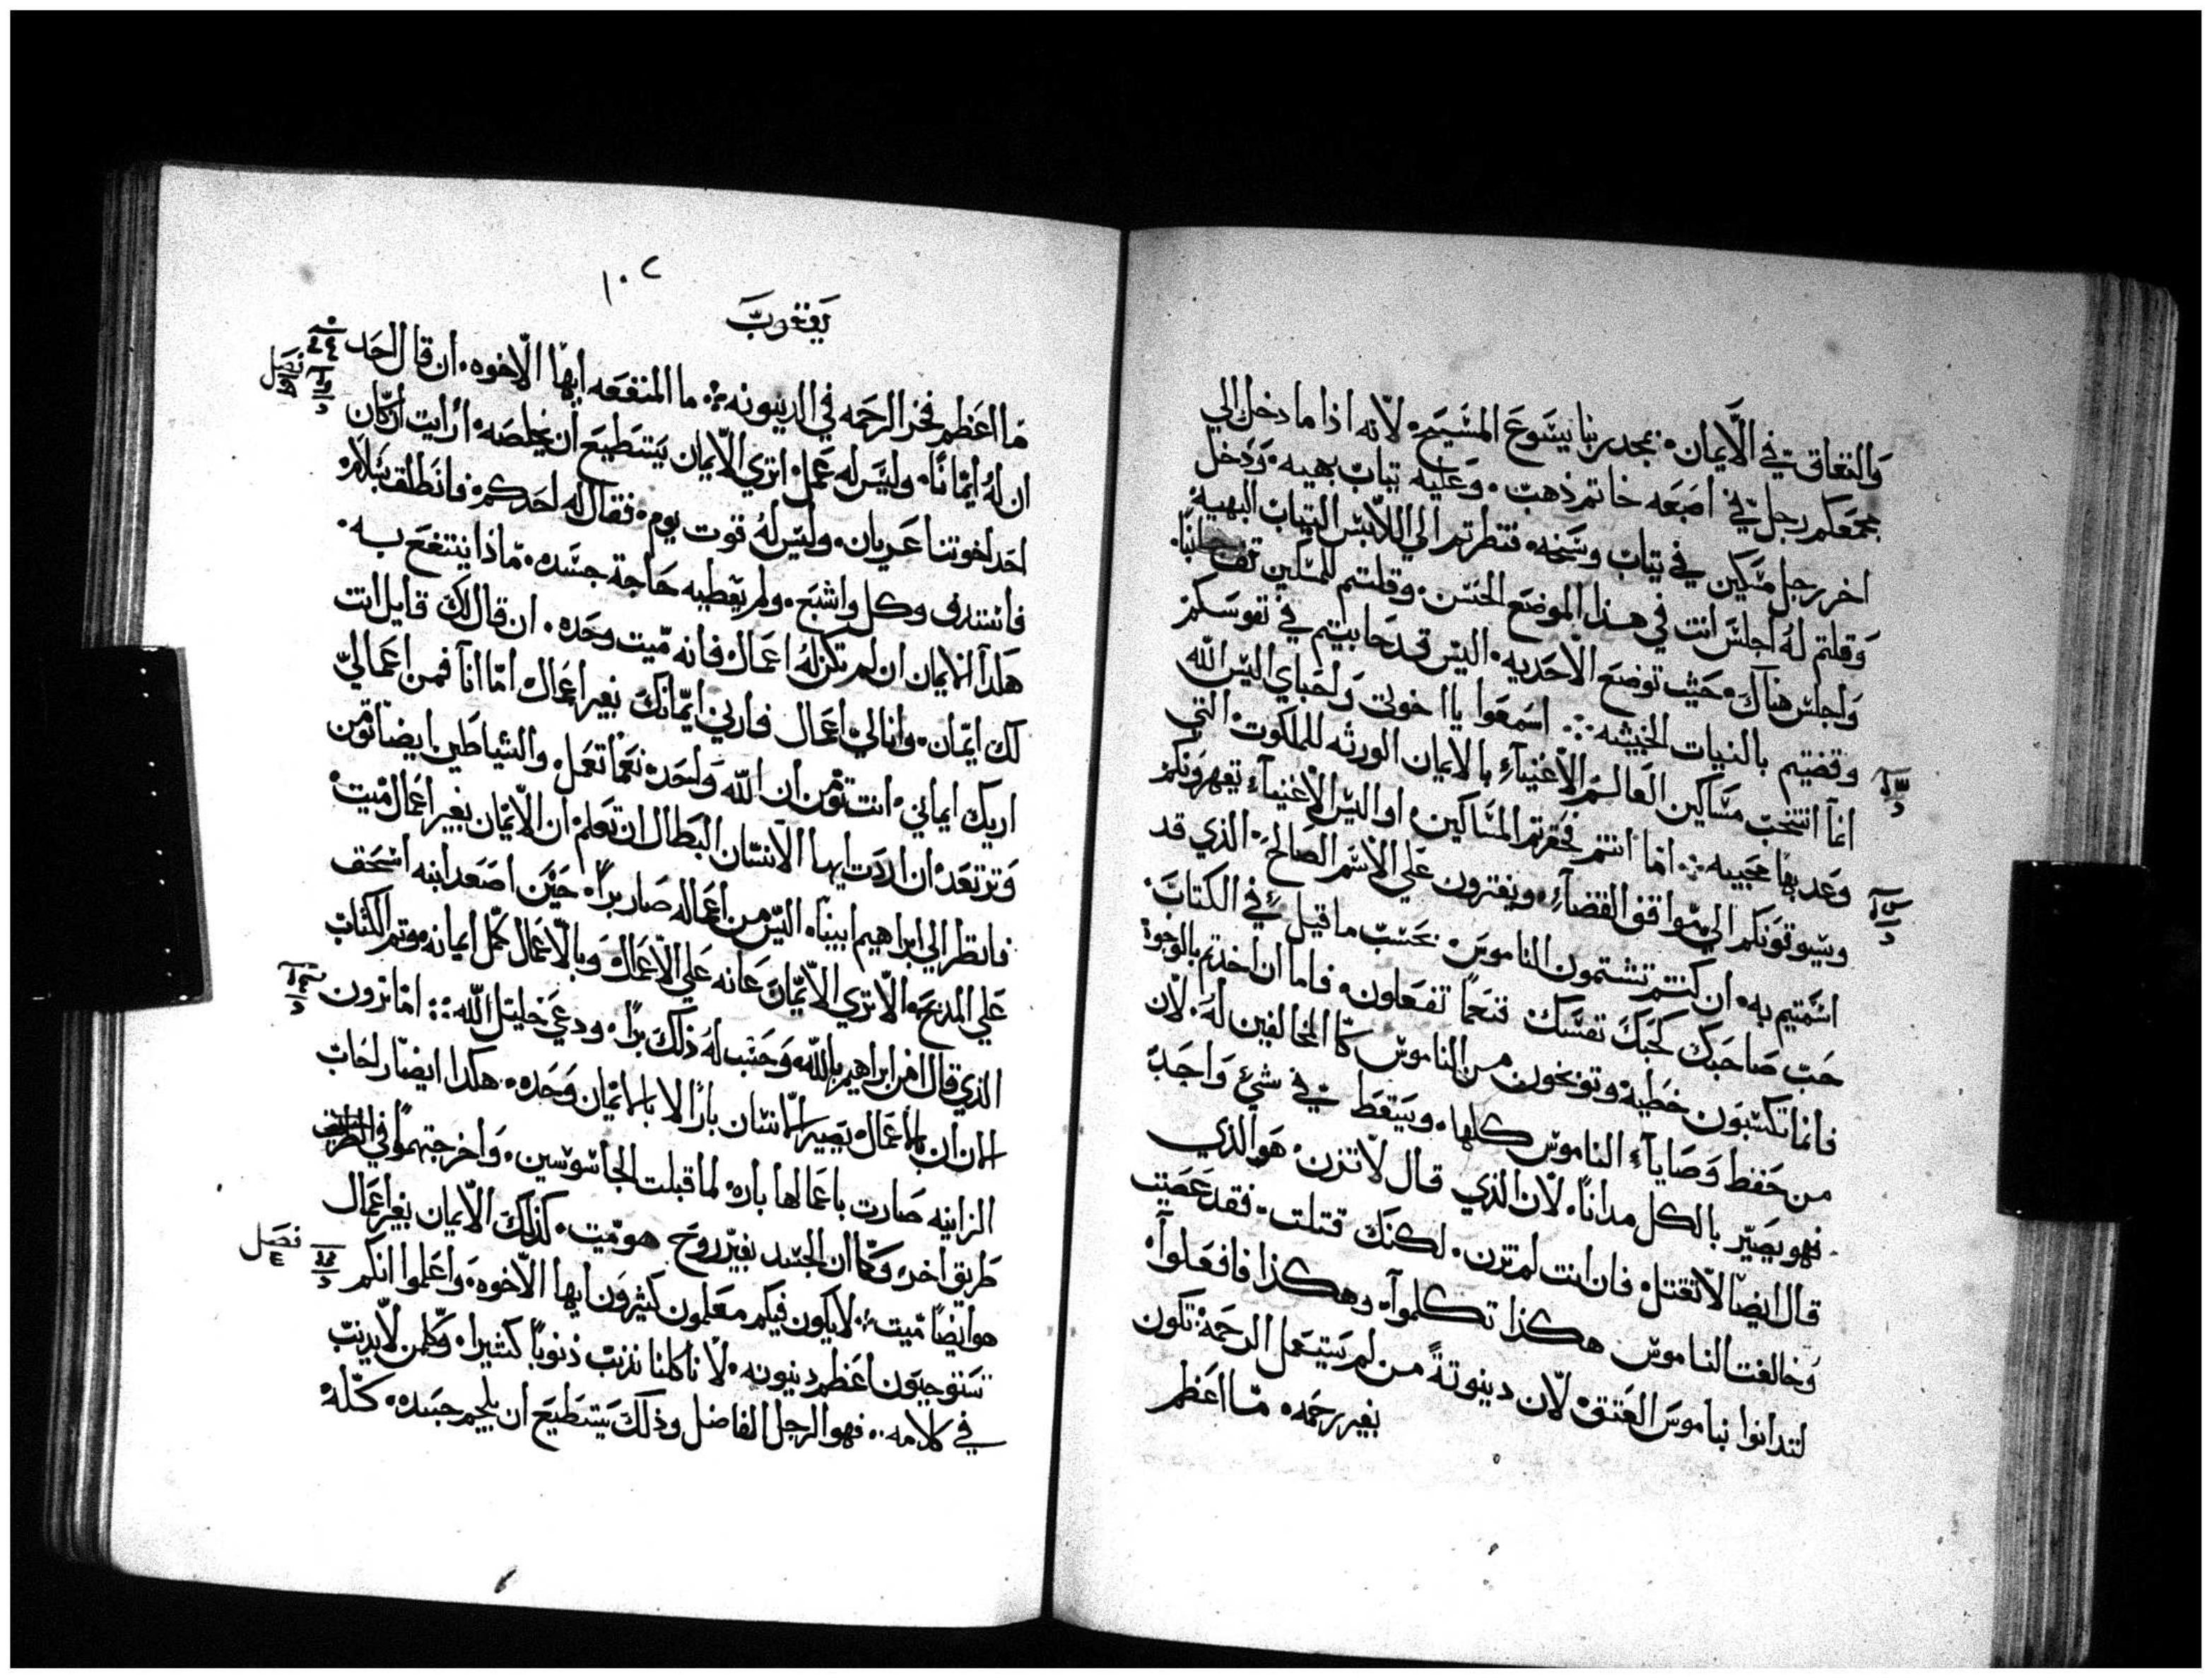 والنفاق في الايمان. بمجد ربنا يسوع المسيح. لانه اذا ما دخل الي
مجمعكم رجل في اصبعه خاتم ذهب. وعليه تياب بهيه. ودخل
اخر رجل مسكين في تياب وسخه. فنظرتم الي اللابس التياب البهيه
وقلتم له اجلس انت في هذا الموضع الحسن. وقلتم للمسكين تقف
واجلس هناك. حيث توضع الاحديه. اليس قد حابيتم في نفوسكم
وقضيتم بالنيات الخبيثه ∴ اسمعوا يا اخوتي واحباي اليس الله
انما انتخب مساكين العالم الاغنياء بالايمان الورثه للملكوت التي
وعد بها محبيه ∴ اما انتم فحقرتم المساكين. او اليس الاغنياء يقهرونكم
ويسوقونكم الي مواقف القضاء. ويفترون علي الاسم الصالح. الذي قد
اسميتم به. ان كنتم تشتمون الناموس. بحسب ما قيل في الكتاب.
حب صاحبك كحبك نفسك. فنعما تفعلون. فاما ان اخدتم بالوجوه
فانما تكسبون خطيه وتوبخون من الناموس كالمخالفين له. لان
من حفظ وصاياء الناموس كلها. ويسقط في شي واحد
فهو يصير بالكل مدانا. لان الذي قال لا تزن. هو الذي
قال ايضا لا تقتل. فان انت لم تزن. لكنك قتلت. فقد عصيت
وخالفت الناموس هكذا تكلموا. وهكذا فافعلوا.
لتدانوا بناموس العتق. لان دينونة من لم يستعمل الرحمة. تكون
بغير رحمه. ما اعظم
١٠٢
يعقوب
ما اعظم فخر الرحمه في الدينونه ∴ ما المنفعه ايها الاخوه. ان قال احد
فصل
ان له ايمانا. وليس له عمل. اتري الايمان يستطيع ان يخلصه. ارايت ان كان
احد اخوتنا عريان. وليس له قوت يوم. فقال له احدكم. فانطلق بسلام
فاستدف وكل واشبع. ولم يعطيه حاجة جسده. ماذا ينتفع به.
هلدا الايمان ان لم تكن له اعمال فانه ميت وحده. ان قال لك قايل انت
لك ايمان. وانا لي اعمال فارني ايمانك بغير اعمال. اما انا فمن اعمالي
اريك ايماني. انت تومن ان الله واحد. نعما تعمل. والشياطين ايضا تومن
وترتعد. ان اردت ايها الانسان البطال ان تعلم ان الايمان بغير اعمال ميت
فانظر الي ابراهيم ابينا. اليس من اعماله صار برا. حين اصعد ابنه اسحق
علي المدبح. الا تري الايمان عانه علي الاعمال. وبالاعمال كمل ايمانه. وتم الكتاب
الذي قال امن ابراهيم بالله. وحسب له ذلك برا. ودعي خليل الله ∴ اما ترون
الان ان بالاعمال يصير الانسان بارا لا بالايمان وحده. هكدا ايضا راحاب
الزانيه صارت باعمالها باره. لما قبلت الجاسوسين. واخرجتهموا في الطريق
طريق اخر. وكما ان الجسد بغير روح هو ميت. كذلك الايمان بغير اعمال
هو ايضا ميت ∴ لا يكون فيكم معلمون كثيرون ايها الاخوه. واعلموا انكم
فصل
ستوجبون اعظم دينونه. لانا كلنا نذنب ذنوبا كثيرا. وكلمن لا يدنب
في كلامه.. فهو الرجل الفاضل وذلك يستطيع ان يلجم جسده. كله